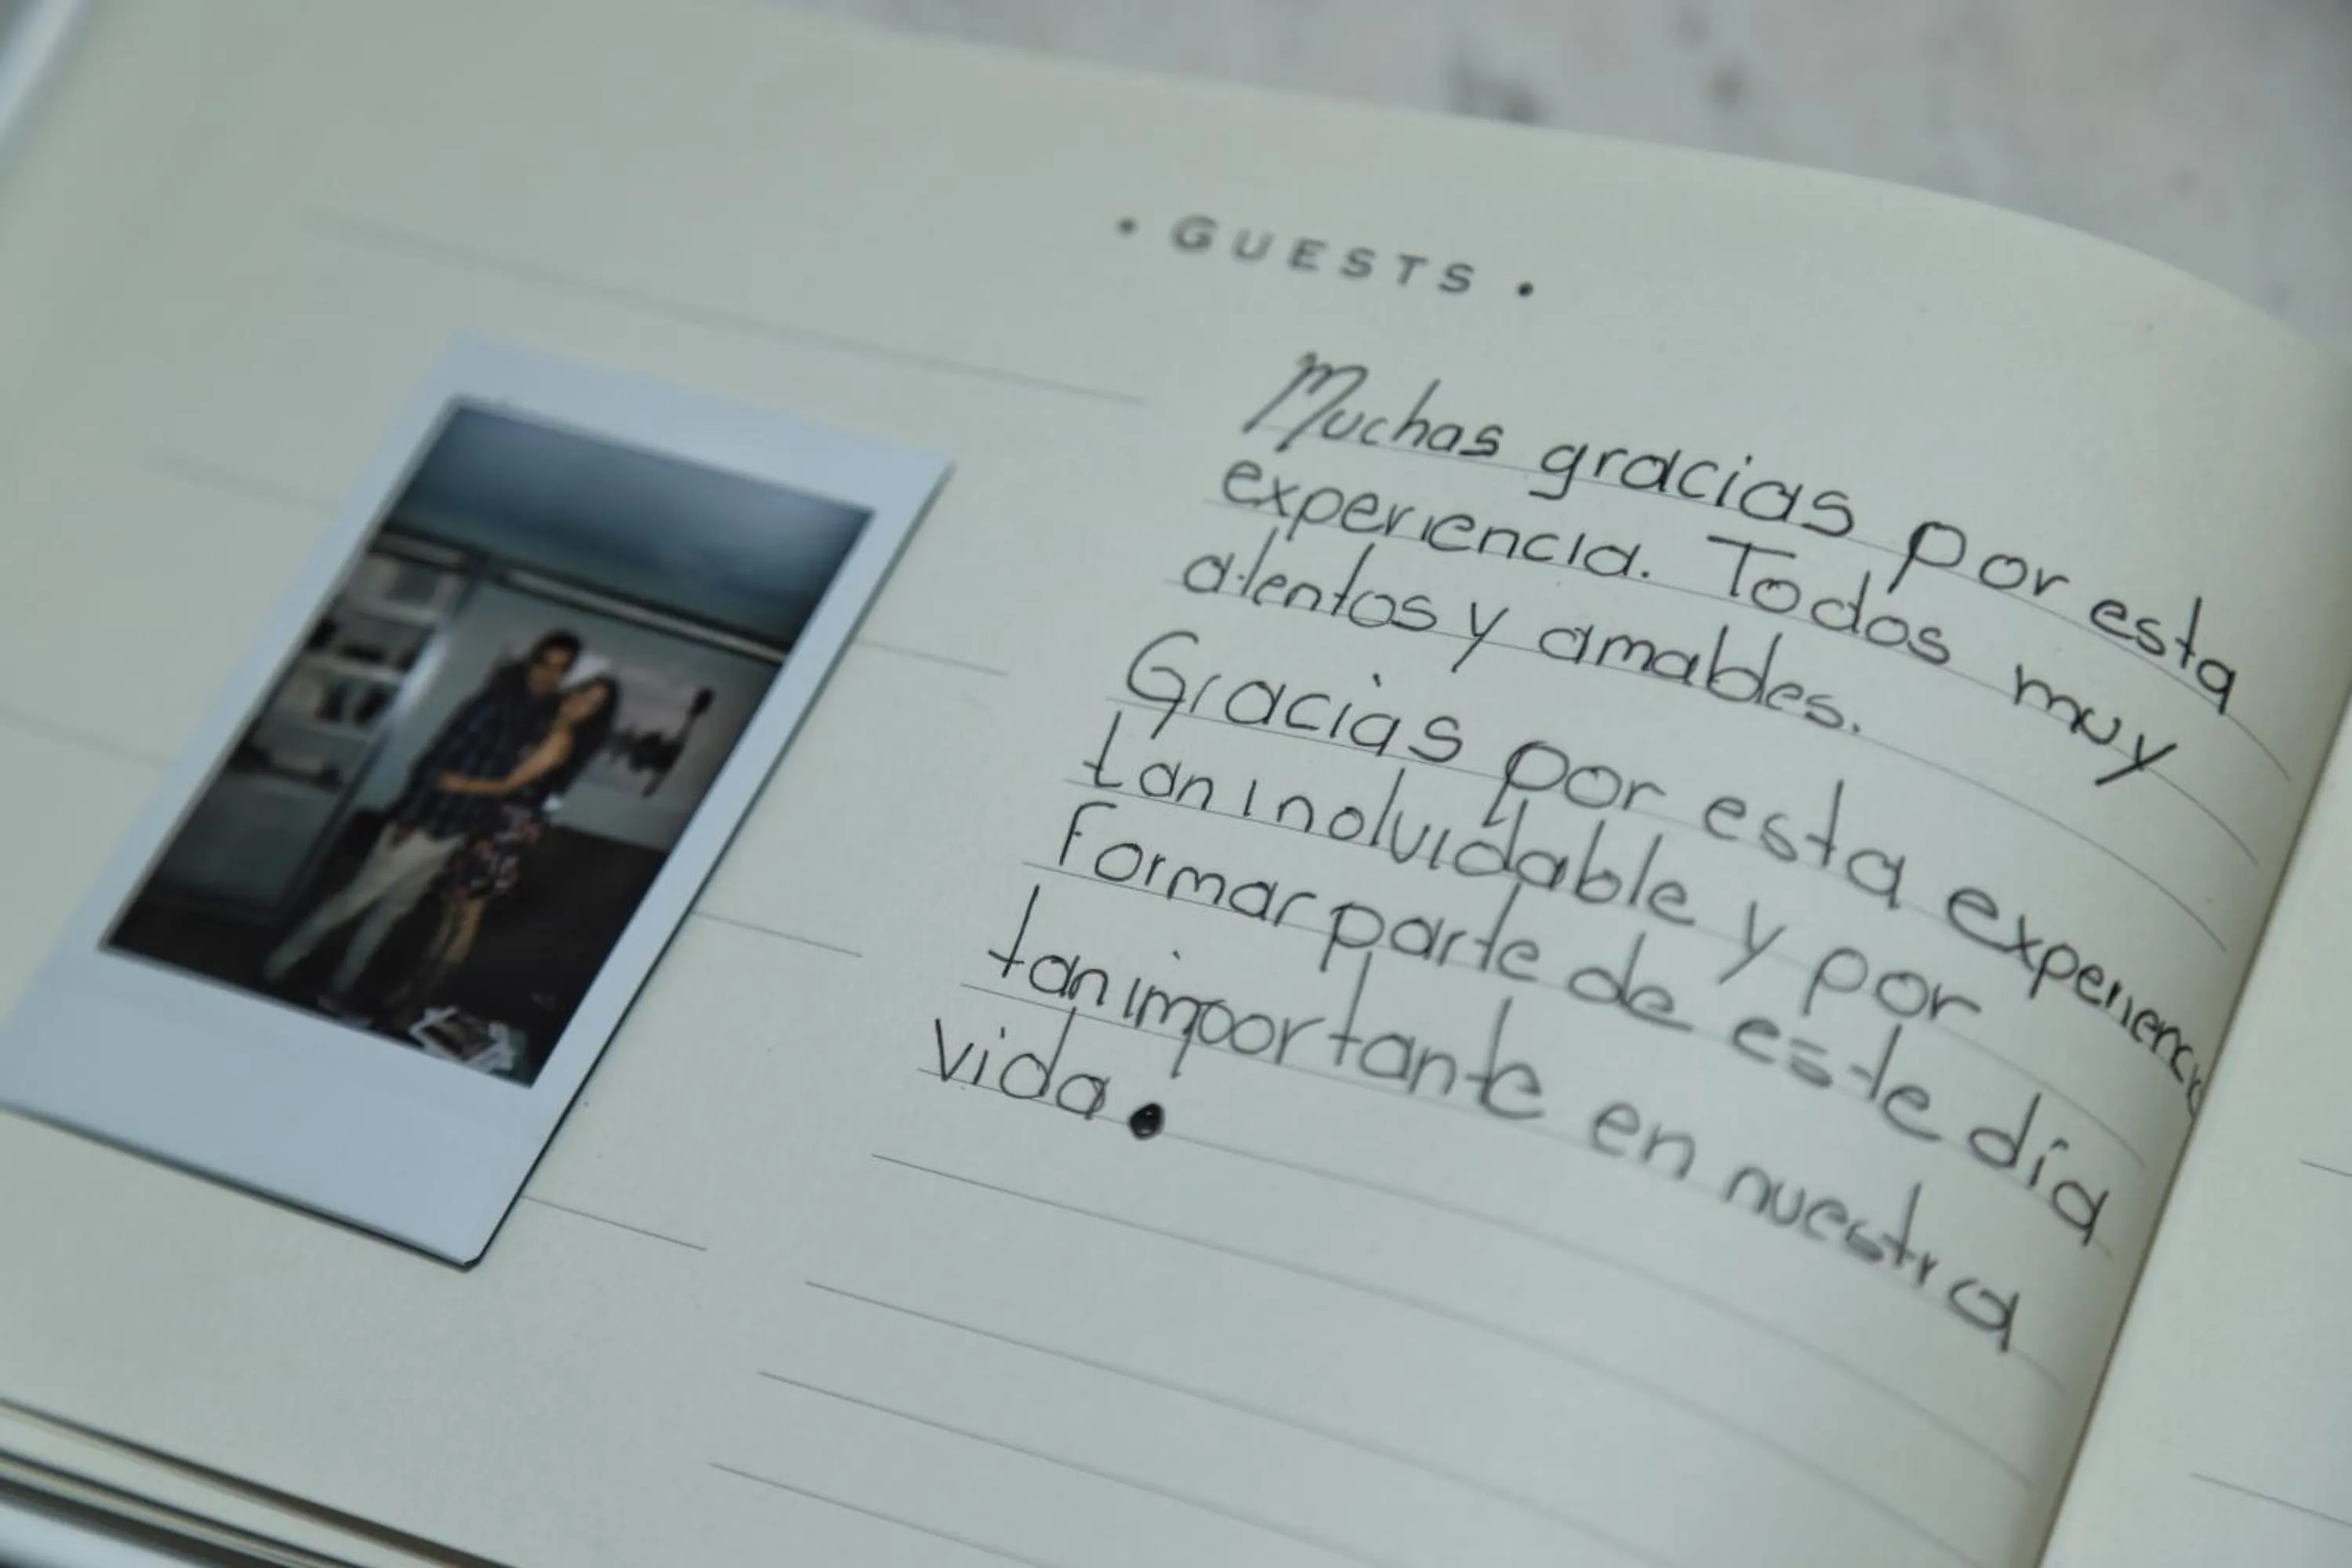 • GUESTS •
Muchas gracias por esta
experiencia. Todos muy
atentos y amables.
Gracias por esta experiencia
tan inolvidable y por
formar parte de este día
tan importante en nuestra
vida.